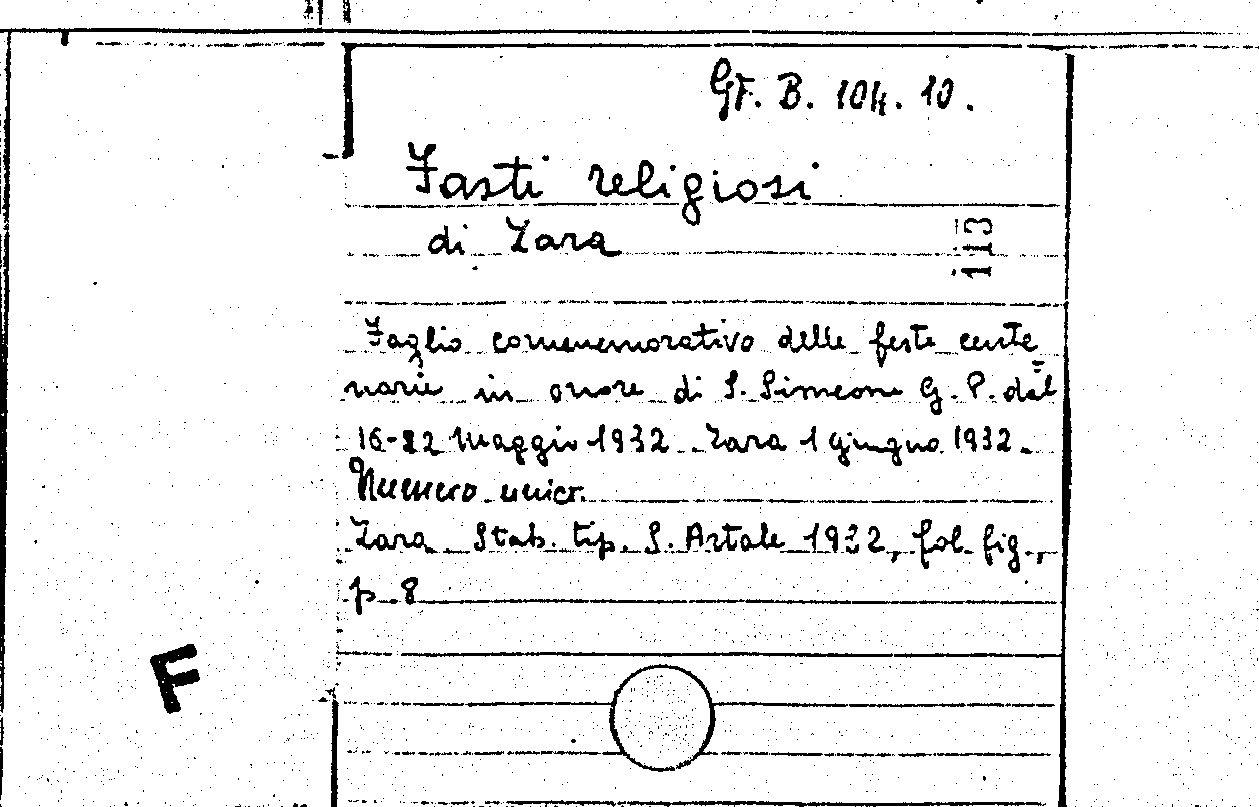 GF. B. 104. 10.
Fasti religiosi
di Zara
113
Foglio comememorativo delle feste cente=
narie in onore di S. Simeone G. P. dal
16-22 Maggio 1932. Zara 1 giugno 1932.
Numero unico.
Zara. Stab. tip. S. Artale 1932, fol. fig.,
p. 8
F